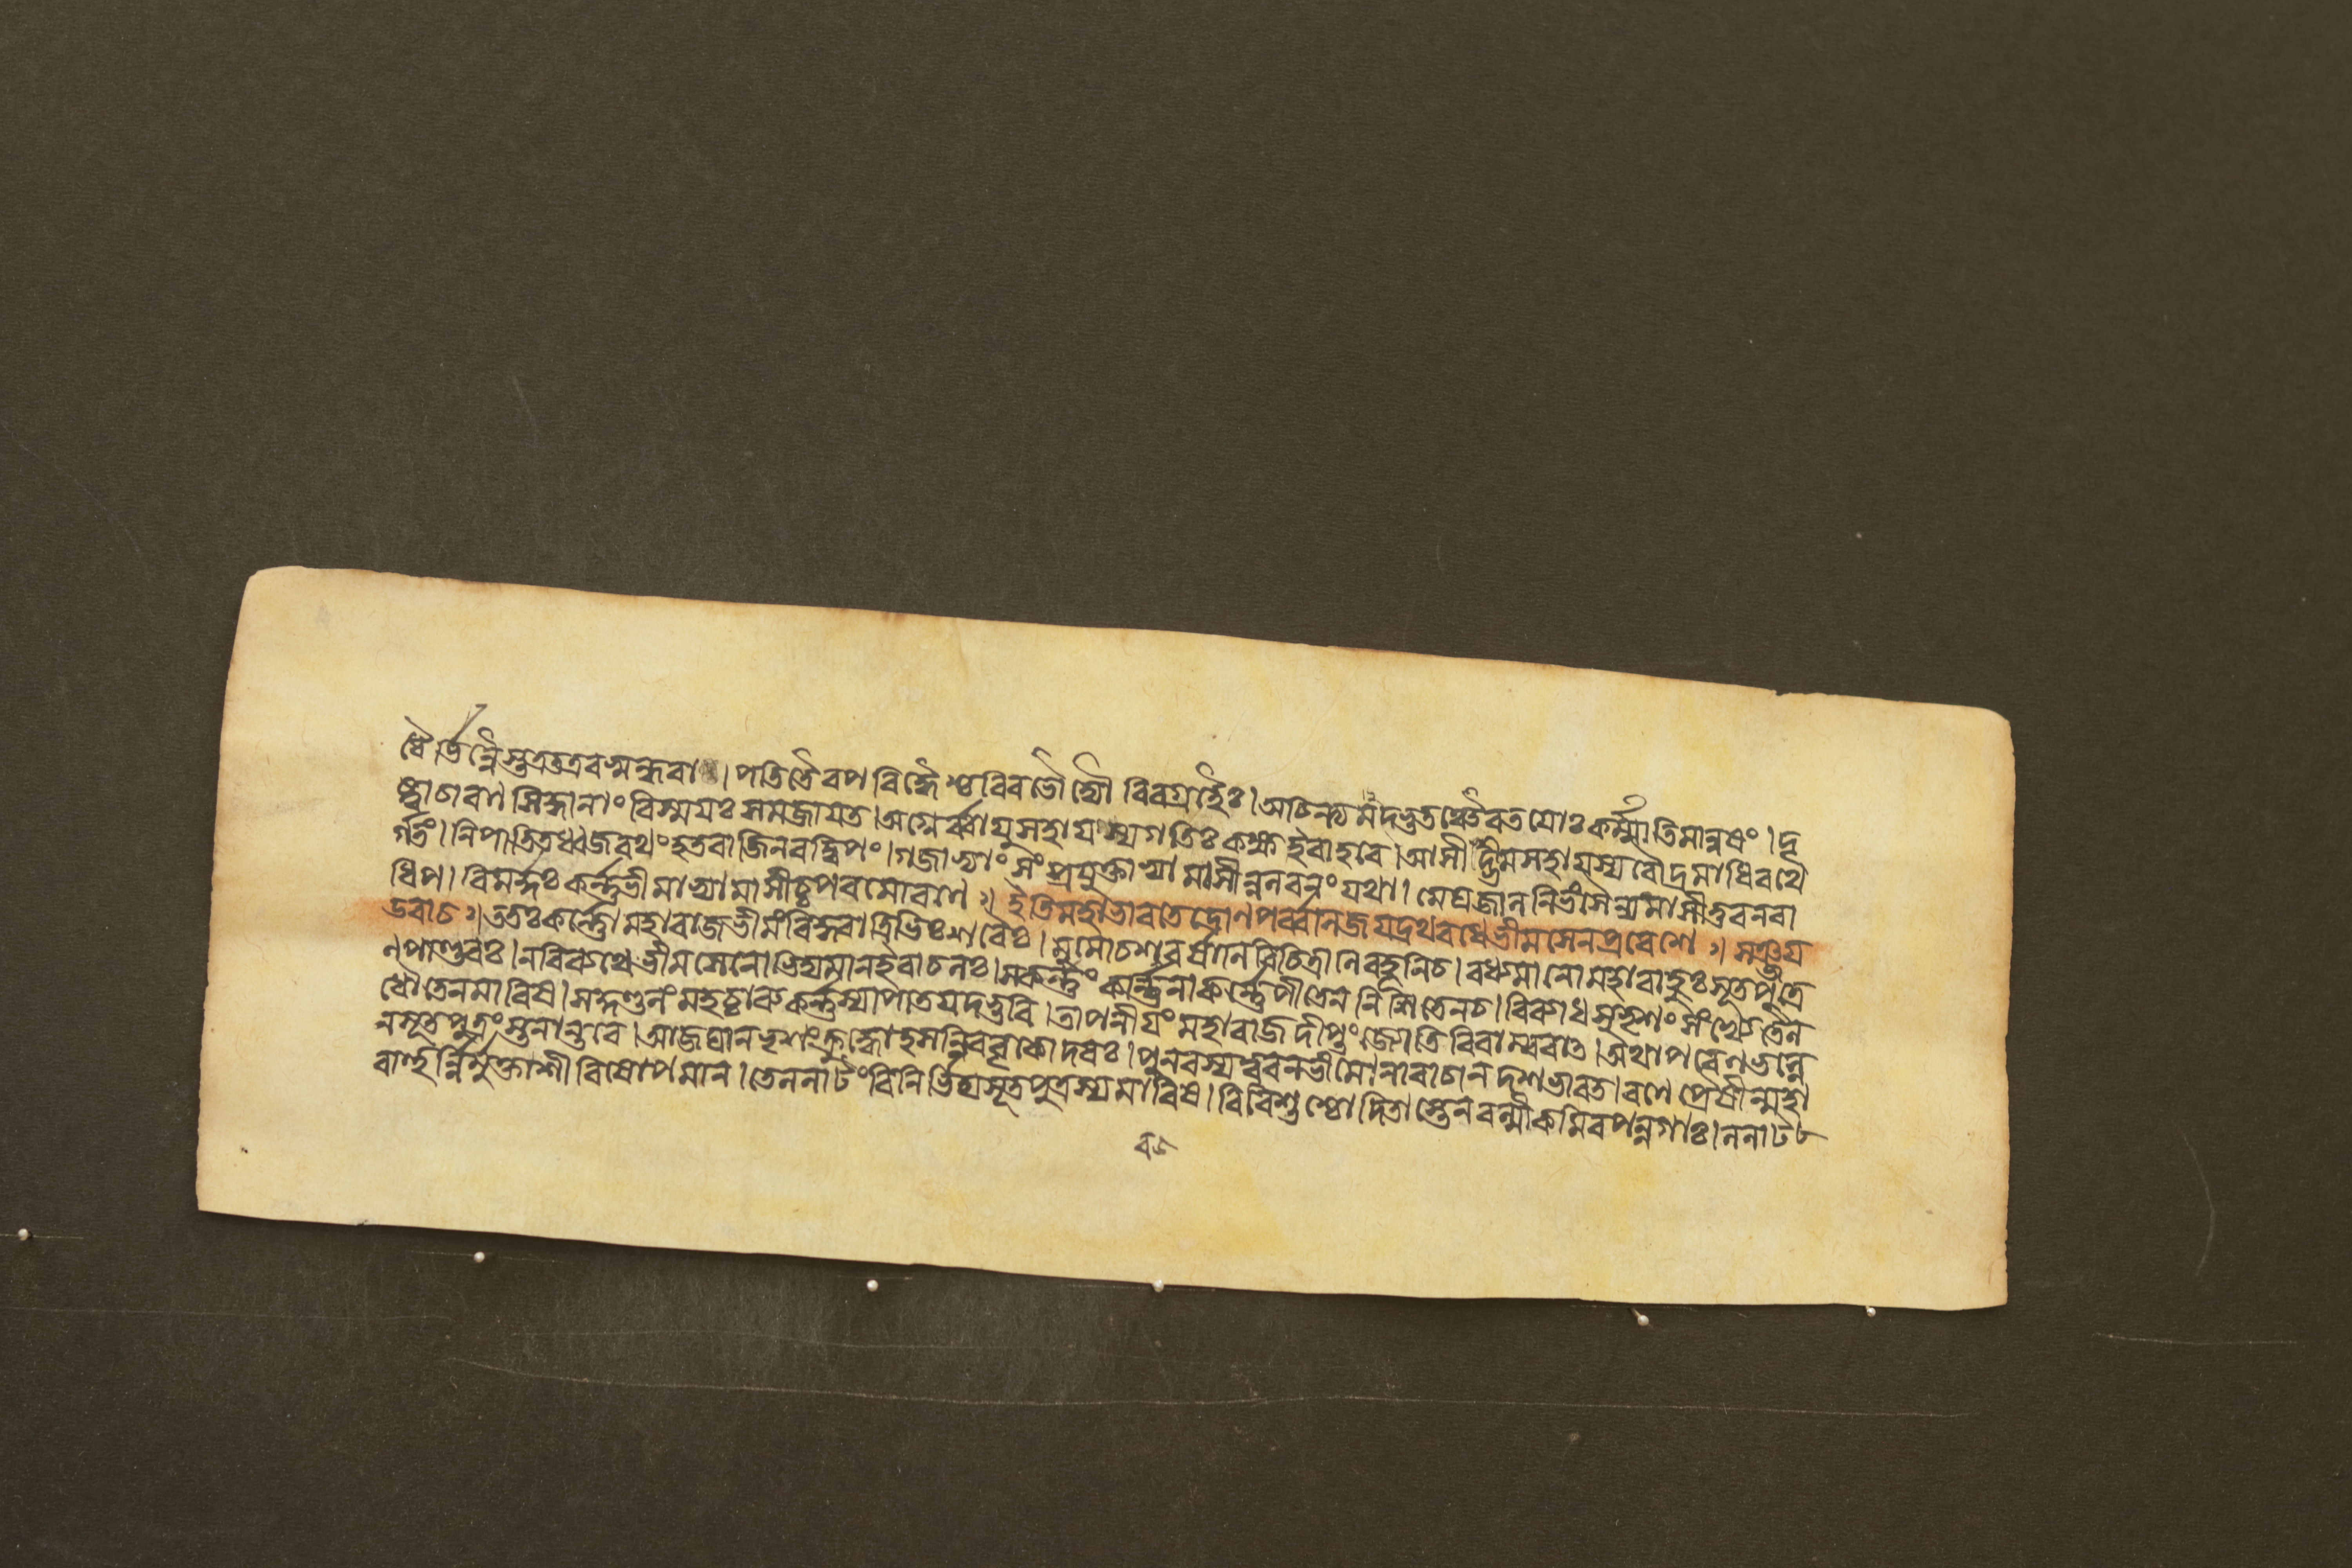 ধৈর্ভিন্নৈস্তত্রতত্রবসুন্ধরা । পতিতৈরপবিদ্ধৈশ্চবিবভৌদ্যৌরিবগ্রহৈঃ । অচিন্ত্যমদ্ভুতঞ্চৈবতয়োঃকর্ম্মাতিমানুষং । দৃ
ষ্ট্বাচারণসিদ্ধানাংবিস্ময়ঃসমজায়ত । অগ্নের্ব্বায়ুসহায়স্যগতিঃকক্ষইবাহবে । আসীদ্ভীমসহায়স্যরৌদ্রমাধিরথে
র্গতং । নিপাতিতধ্বজরথংহতবাজিনরদ্বিপং । গজাভ্যাংসংপ্রযুক্তাভ্যামাসীন্নলবনংযথা । মেঘজালনিভংসৈন্যমাসীত্তবনরা
ধিপ । বিমর্দ্দঃকর্ণ্ণভীমাভ্যামাসীচ্চপরমোরণে ॥ ইতিমহাভারতেদ্রোণপর্ব্বনিজয়দ্রথবধেভীমসেনপ্রবেশে ॥ সঞ্জয়
উবাচ ॥ ততঃকর্ণ্ণোমহারাজভীমংবিদ্ধ্বাত্রিভিঃশরৈঃ । মুমোচশরবর্ষানিবিচিত্রানিবহূনিচ । বধ্যমানোমহাবাহুঃসূতপুত্রে
ণপাণ্ডবঃ । নবিব্যথেভীমসেনোভিদ্যমানইবাচলঃ । সকর্ণ্ণংকর্ণ্ণিনাকর্ণ্ণেপীতেননিশিতেনচ । বিব্যাধসুভৃশংসংখ্যেতৈল
ধৌতেনমারিষ । সকুণ্ডলংমহচ্চারুকর্ণ্ণস্যাপাতয়দ্ভুবি । তাপনীয়ংমহারাজদীপ্তংজ্যোতিরিবাম্বরাৎ । অথাপরেণভল্লে
নসূতপুত্রংস্তনান্তরে । আজঘানভৃশংক্রুদ্ধোহসন্নিববৃকোদরঃ । পুনরস্যত্বরন্ভীমোনারাচান্দশভারত । রণেপ্রৈষীন্মহা
বাহুর্ন্নির্মুক্তাশীবিষোপমান্ । তেললাটংবিনির্ভিদ্যসূতপুত্রস্যমারিষ । বিবিশুশ্চোদিতাস্তেনবল্মীকমিবপন্নগাঃ । ললাট